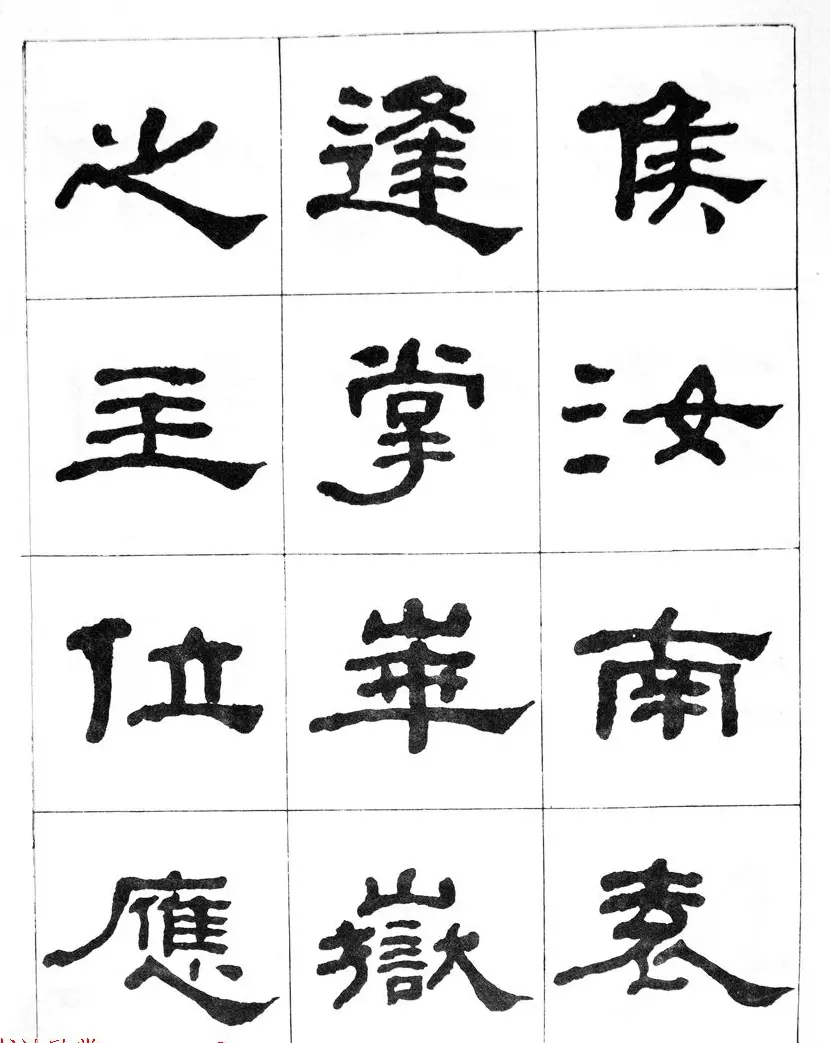 侯汝南袁
逢掌華嶽
之主位應